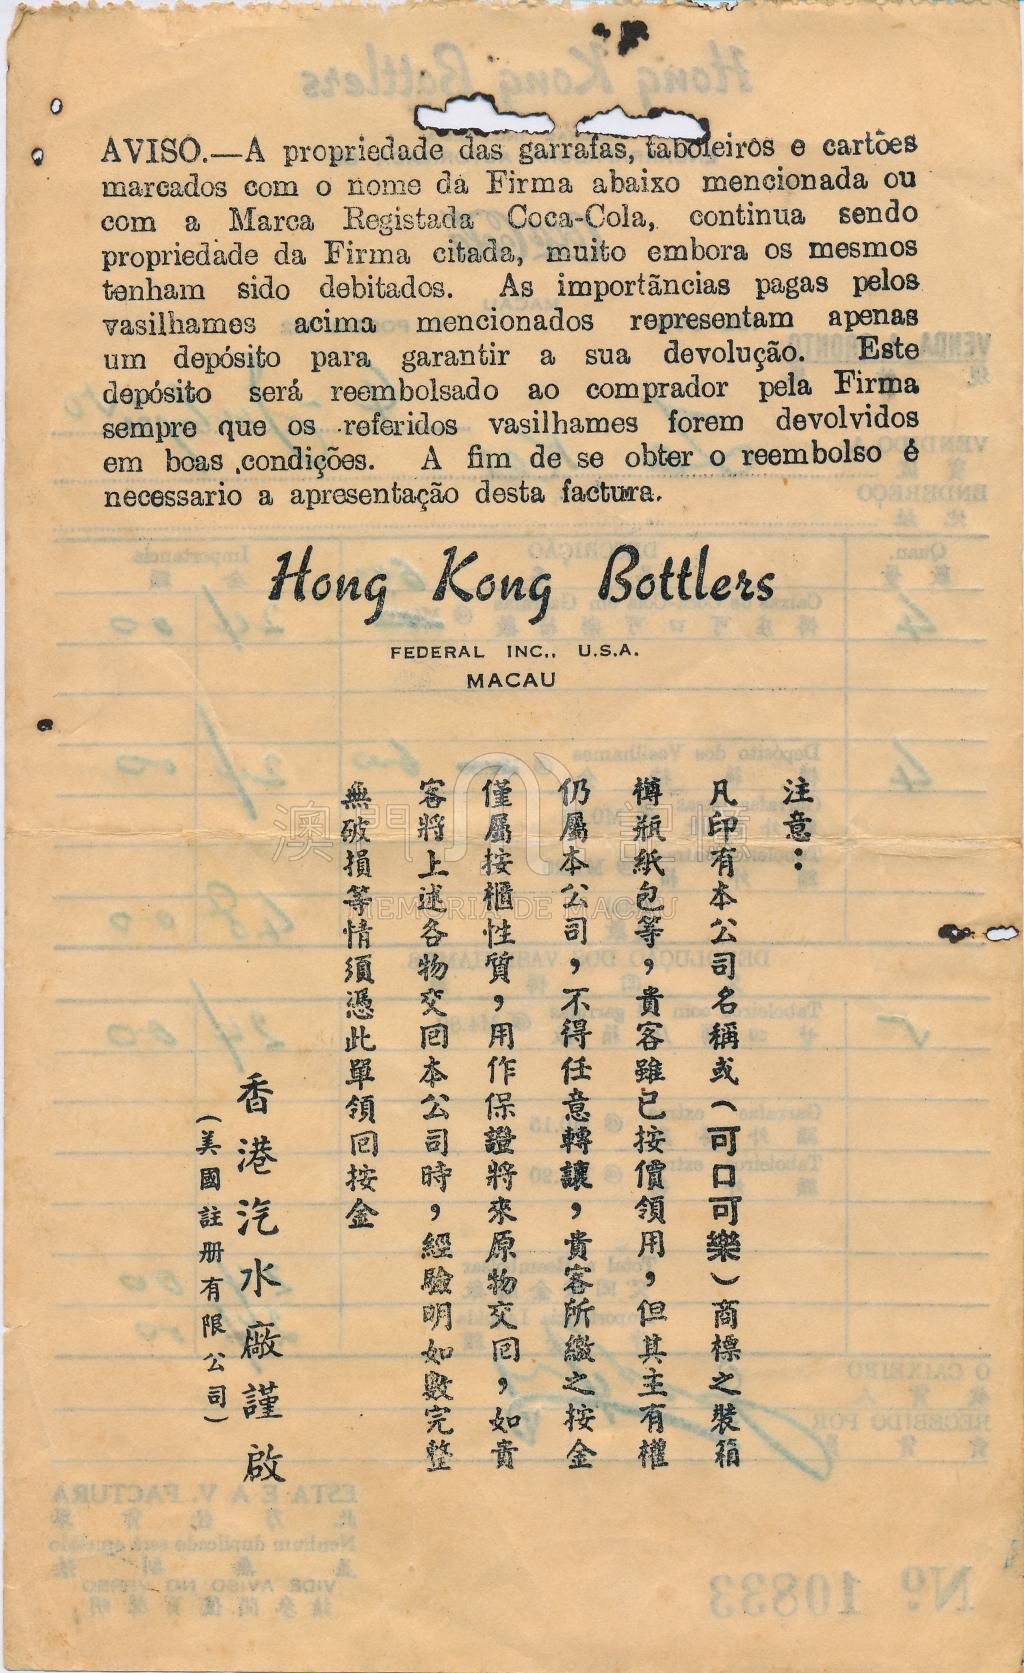 AVISO.—A propriedade das garrafas, taboleiros e cartões
marcados com o nome da Firma abaixo mencionada ou
com a Marca Registada Coca-Cola, continua sendo
propriedade da Firma citada, muito embora os mesmos
tenham sido debitados. As importâncias pagas pelos
vasilhames acima mencionados representam apenas
um depósito para garantir a sua devolução. Este
depósito será reembolsado ao comprador pela Firma
sempre que os referidos vasilhames forem devolvidos
em boas condições. A fim de se obter o reembolso é
necessario a apresentação desta factura.
Hong Kong Bottlers
FEDERAL INC., U.S.A.
MACAU
注意：
凡印有本公司名稱或（可口可樂）商標之裝箱
樽瓶紙包等，貴客雖已按價領用，但其主有權
仍屬本公司，不得任意轉讓，貴客所繳之按金
僅屬按櫃性質，用作保證將來原物交回，如貴
客將上述各物交回本公司時，經驗明如數完整
無破損等情須憑此單領回按金
香港汽水廠謹啟
（美國註册有限公司）
澳門記憶
MEMÓRIA DE MACAU